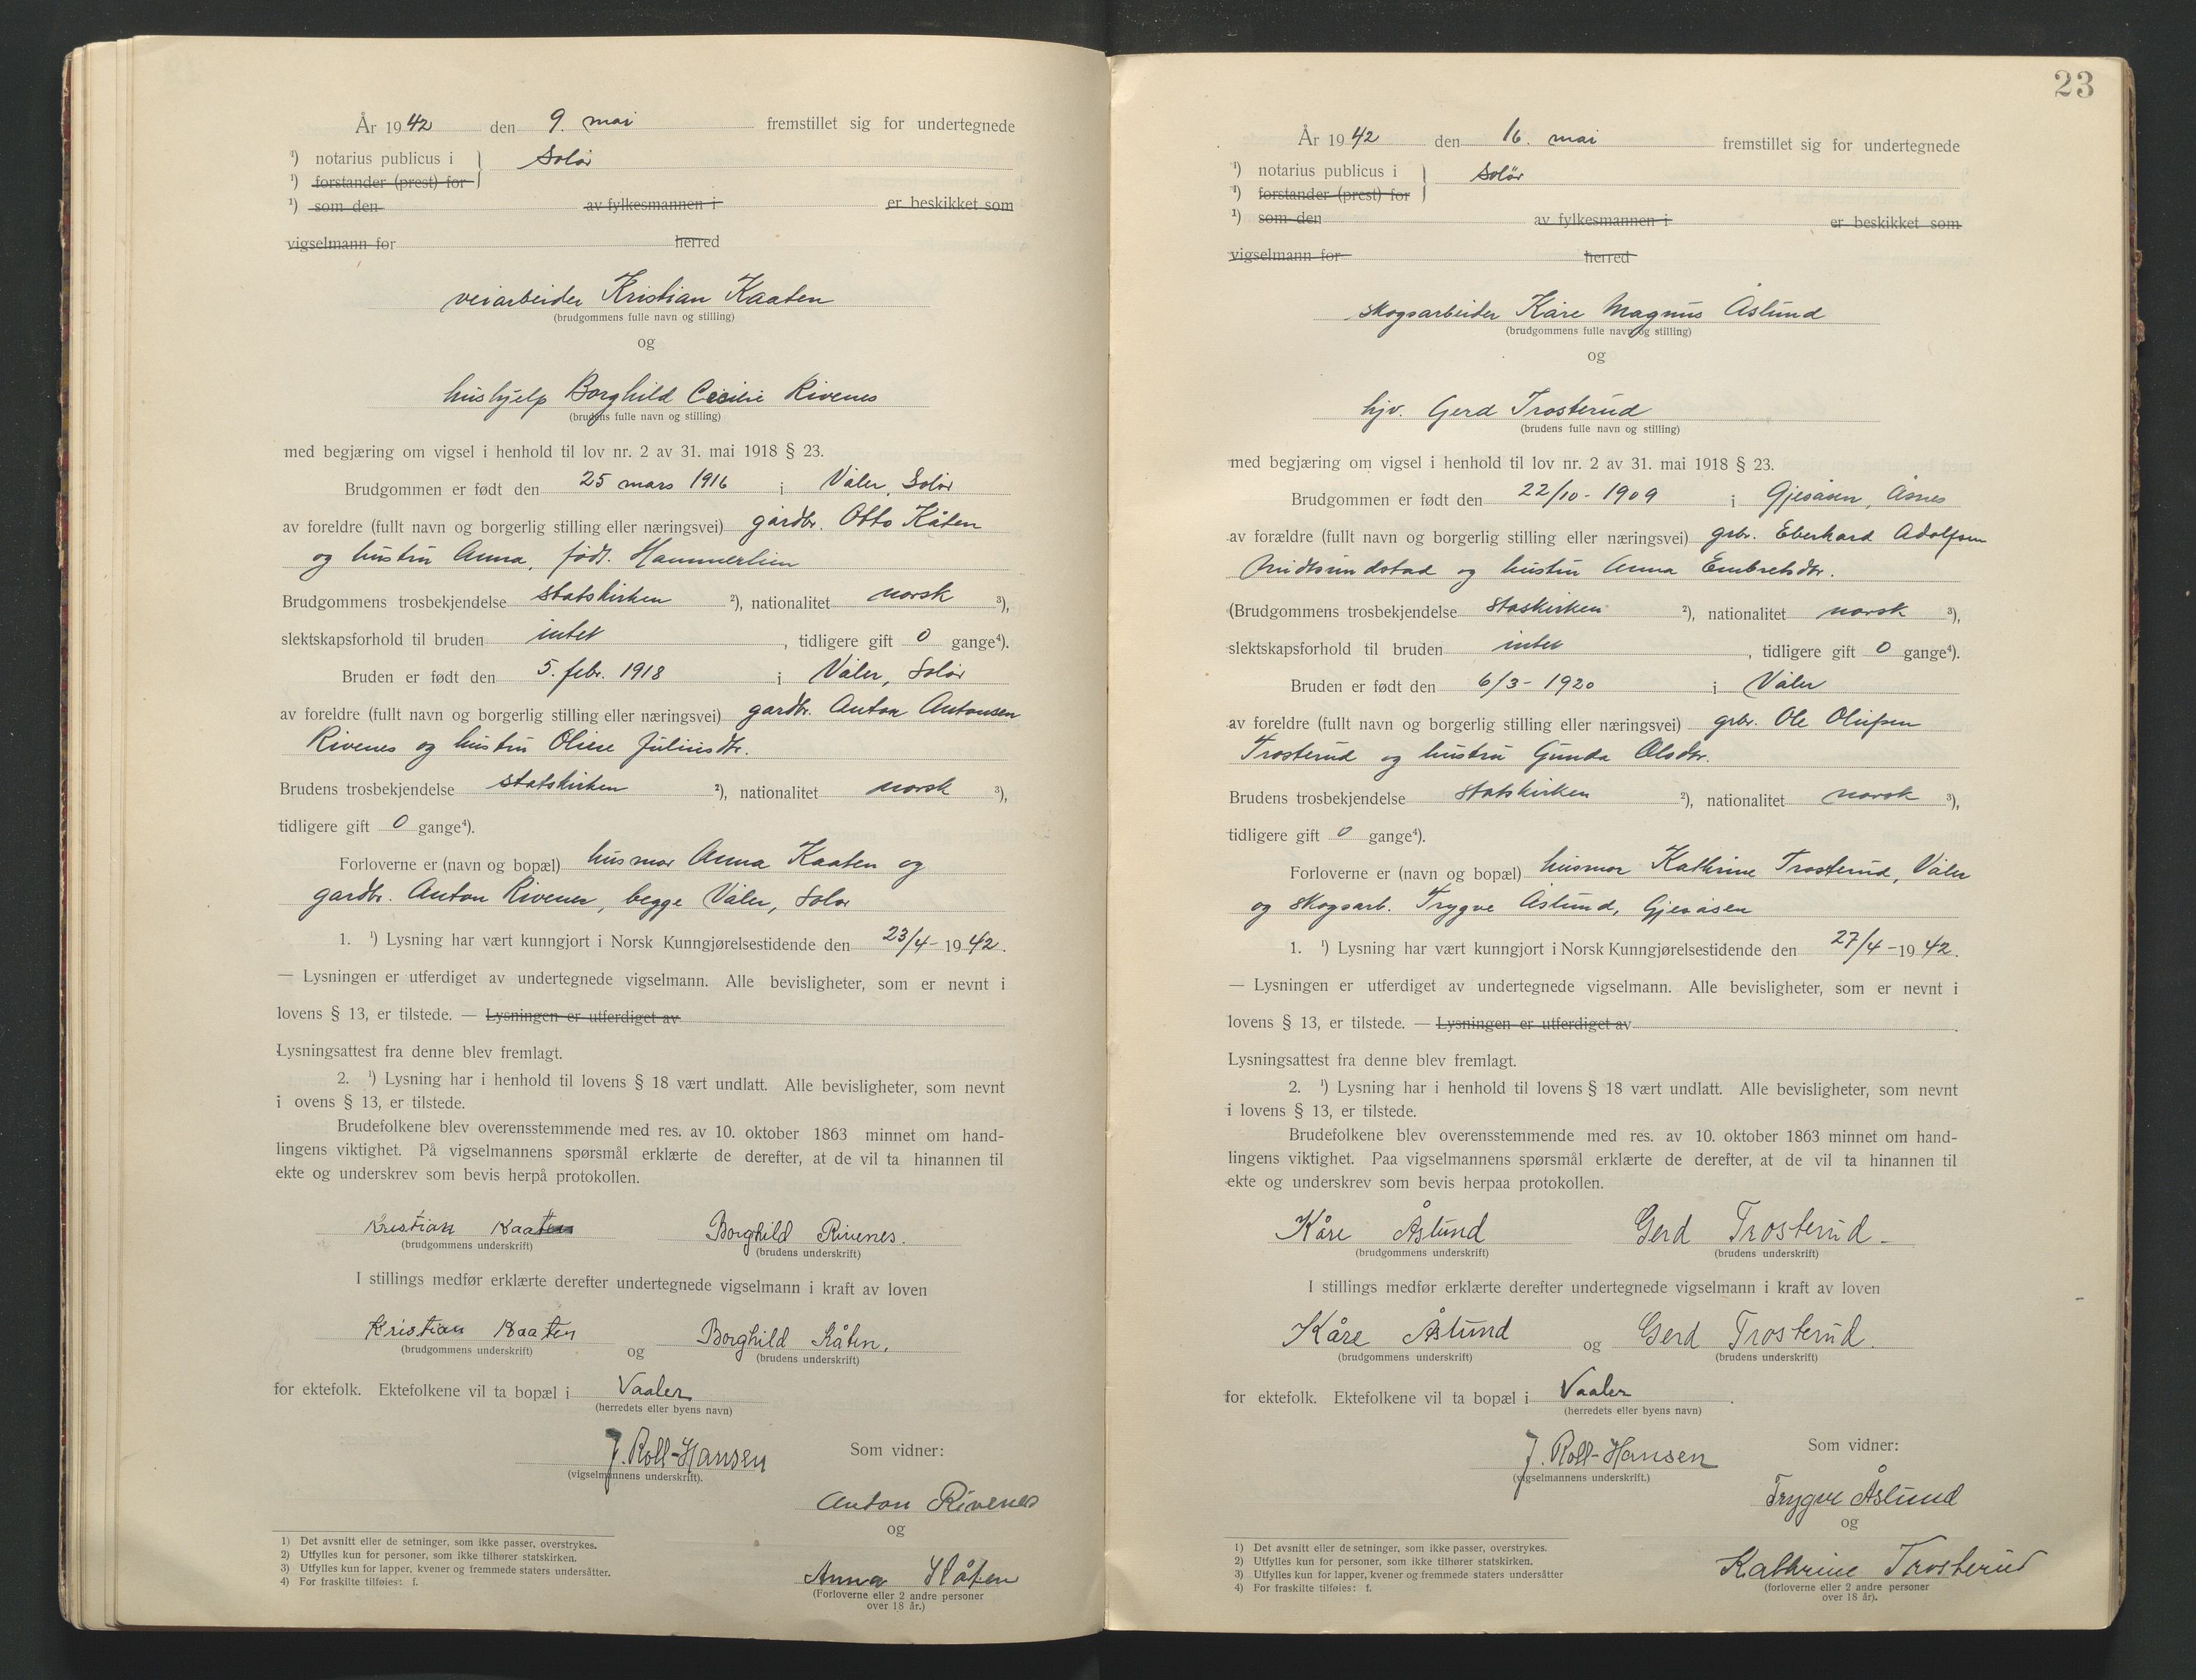 År 1942 den 9. mai fremstillet sig for undertegnede
¹) notarius publicus i } Solør
¹) forstander (prest) for
¹) som den av fylkesmannen i er beskikket som
vigselmann for herred
veiarbeider Kristian Kaaten
(brudgommens fulle navn og stilling)
og
hushjelp Borghild Cecilie Rivenes
(brudens fulle navn og stilling)
med begjæring om vigsel i henhold til lov nr. 2 av 31. mai 1918 § 23.
Brudgommen er født den 25 mars 1916 i Våler, Solør
av foreldre (fullt navn og borgerlig stilling eller næringsvei) gårdbr. Otto Kåten
og hustru Anna, født. Hammerlien
Brudgommens trosbekjendelse statskirken ²), nationalitet norsk ³),
slektskapsforhold til bruden intet , tidligere gift 0 gange⁴).
Bruden er født den 5. febr. 1918 i Våler, Solør
av foreldre (fullt navn og borgerlig stilling eller næringsvei) gardbr. Anton Antonsen
Rivenes og hustru Oliese Juliusdtr.
Brudens trosbekjendelse statskirken ²), nationalitet norsk ³),
tidligere gift 0 gange⁴).
Forloverne er (navn og bopæl) husmor Anna Kaaten og
gardbr. Anton Rivenes, begge Våler, Solør
1. ¹) Lysning har vært kunngjort i Norsk Kunngjørelsestidende den 23/4 - 1942.
— Lysningen er utferdiget av undertegnede vigselmann. Alle bevisligheter, som er nevnt i
lovens § 13, er tilstede. — Lysningen er utferdiget av
Lysningsattest fra denne blev fremlagt.
2. ¹) Lysning har i henhold til lovens § 18 vært undlatt. Alle bevisligheter, som nevnt
i ovens § 13, er tilstede.
Brudefolkene blev overensstemmende med res. av 10. oktober 1863 minnet om hand-
lingens viktighet. På vigselmannens spørsmål erklærte de derefter, at de vil ta hinannen til
ekte og underskrev som bevis herpå protokollen.
Kristian Kaaten Borghild Rivenes.
(brudgommens underskrift) (brudens underskrift)
I stillings medfør erklærte derefter undertegnede vigselmann i kraft av loven
Kristian Kaaten og Borghild Kåten.
(brudgommens underskrift) (brudens underskrift)
for ektefolk. Ektefolkene vil ta bopæl i Vaaler
(herredets eller byens navn)
J. Roll-Hansen Som vidner:
(vigselmannens underskrift).
Anton Rivenes
og
Anna Kåten
(Forloverne eller 2 andre personer
over 18 år.)
1) Det avsnitt eller de setninger, som ikke passer, overstrykes.
2) Utfylles kun for personer, som ikke tilhører statskirken.
3) Utfylles kun for lapper, kvener og fremmede staters undersåtter.
4) For fraskilte tilføies: f.
23
År 1942 den 16. mai fremstillet sig for undertegnede
¹) notarius publicus i } Solør
¹) forstander (prest) for
¹) som den av fylkesmannen i er beskikket som
vigselmann for herred
skogsarbeider Kåre Magnus Åslund
(brudgommens fulle navn og stilling)
og
hjv. Gerd Trosterud
(brudens fulle navn og stilling)
med begjæring om vigsel i henhold til lov nr. 2 av 31. mai 1918 § 23.
Brudgommen er født den 22/10 - 1909 i Gjesåsen, Åsnes
av forældre (fullt navn og borgerlig stilling eller næringsvei) grbr. Eberhard Adolfsen
og hustru Anna Embretsdtr.
(Brudgommens trosbekjendelse staskirken ²), nationalitet norsk ³),
slektskapsforhold til bruden intet , tidligere gift 0 gange⁴).
Bruden er født den 6/3 - 1920 i Våler
av foreldre (fullt navn og borgerlig stilling eller næringsvei) grbr. Ole Olufsen
Trosterud og hustru Gunda Olsdtr.
Brudens trosbekjendelse statskirken ²), nationalitet norsk ³),
tidligere gift 0 gange⁴).
Forloverne er (navn og bopæl) husmor Kathrine Trosterud, Våler
og skogsarb. Trygve Åslund, Gjesåsen
1. ¹) Lysning har vært kunngjort i Norsk Kunngjørelsestidende den 27/4 - 1942.
— Lysningen er utferdiget av undertegnede vigselmann. Alle bevisligheter, som er nevnt i
lovens § 13, er tilstede. — Lysningen er utferdiget av .
Lysningsattest fra denne blev fremlagt.
2. ¹) Lysning har i henhold til lovens § 18 vært undlatt. Alle bevisligheter, som nevnt
i lovens § 13, er tilstede.
Brudefolkene blev overensstemmende med res. av 10. oktober 1863 minnet om hand-
lingens viktighet. Paa vigselmannens spørsmål erklærte de derefter, at de vil ta hinannen til
ekte og underskrev som bevis herpaa protokollen.
Kåre Åslund Gerd Trosterud.
(brudgommens underskrift) (brudens underskrift)
I stillings medfør erklærte derefter undertegnede vigselmann i kraft av loven
Kåre Åslund og Gerd Trosterud.
(brudgommens underskrift) (brudens underskrift)
for ektefolk. Ektefolkene vil ta bopæl i Vaaler .
(herredets eller byens navn)
J. Roll-Hansen Som vidner:
(vigselmannens underskrift.)
Trygve Åslund
og
Kathrine Trosterud
(forloverne eller 2 andre personer
over 18 år).
1) Det avsnitt eller de setninger, som ikke passer, overstrykes.
2) Utfylles kun for personer, som ikke tilhører statskirken.
3) Utfylles kun for lapper, kvener og fremmede staters undersåtter
4) For fraskilte tilføies: f.